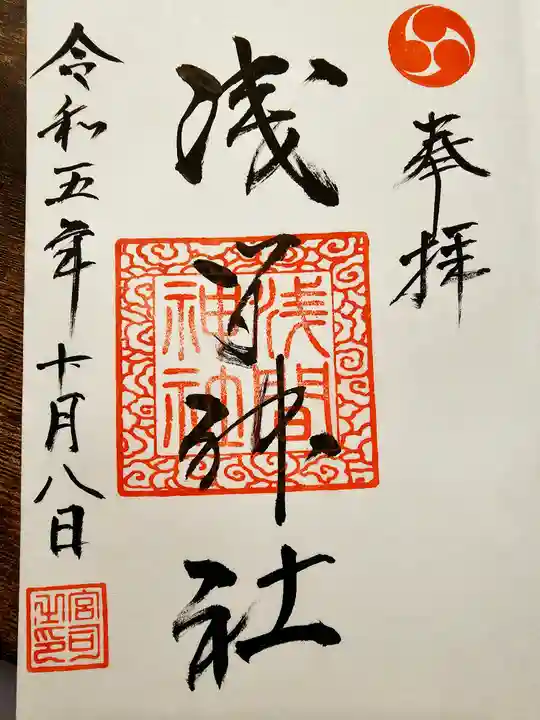 奉拝
浅间神社
浅間
神社
令和五年十月八日
宮司
之印